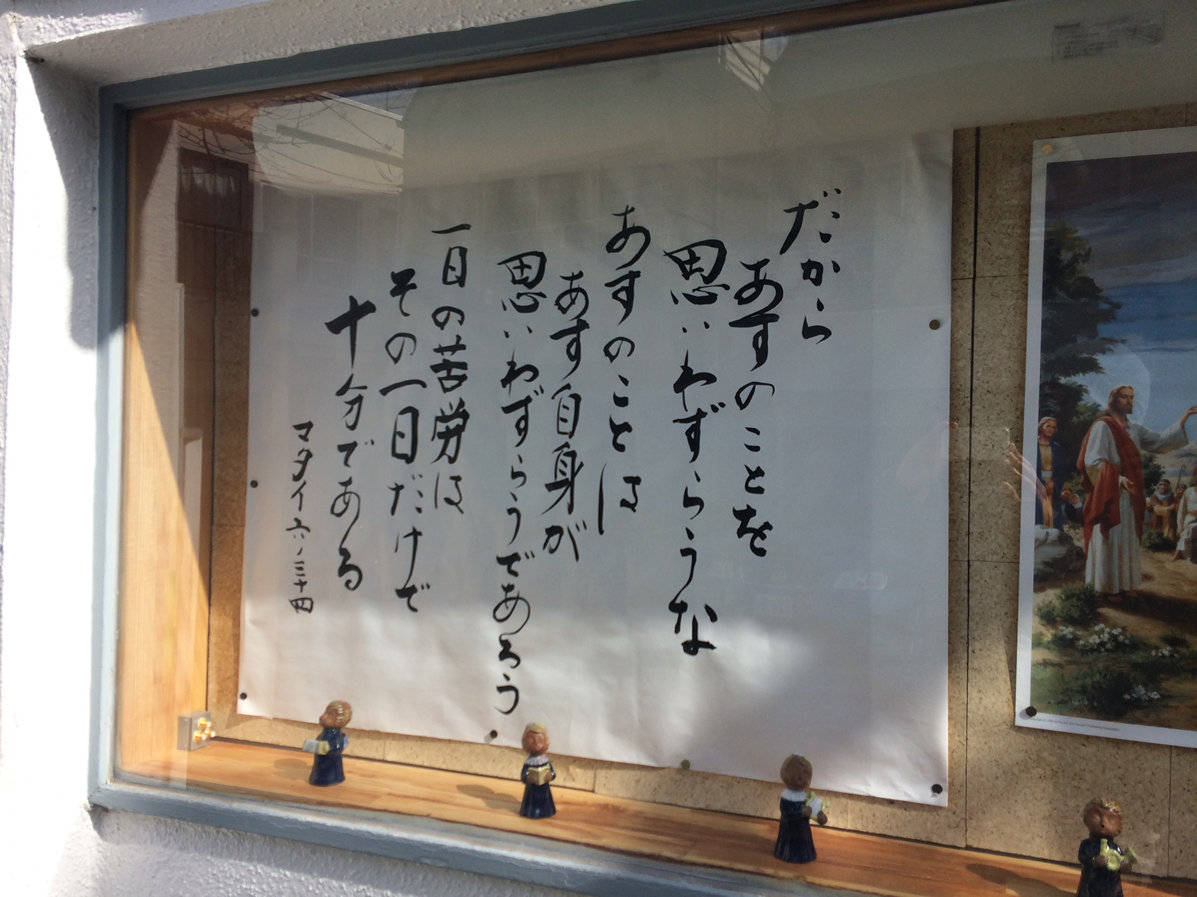 だから
あすのことを
思いわずらうな
あすのことは
あす自身が
思いわずらうであろう
一日の苦労は
その一日だけで
十分である
マタイ六ノ三十四